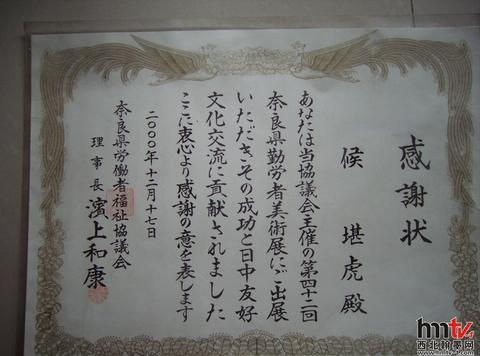 感謝状
候 堪虎 殿
あなたは当協議会主催の第四十二回
奈良県勤労者美術展にご出展
いただきその成功と日中友好
文化交流に貢献されました
ここに衷心より感謝の意を表します
二〇〇〇年十二月十七日
奈良県労働者福祉協議会
理事長 濱上和康
hmtv
西北翰墨网
www.hmtv-t.com